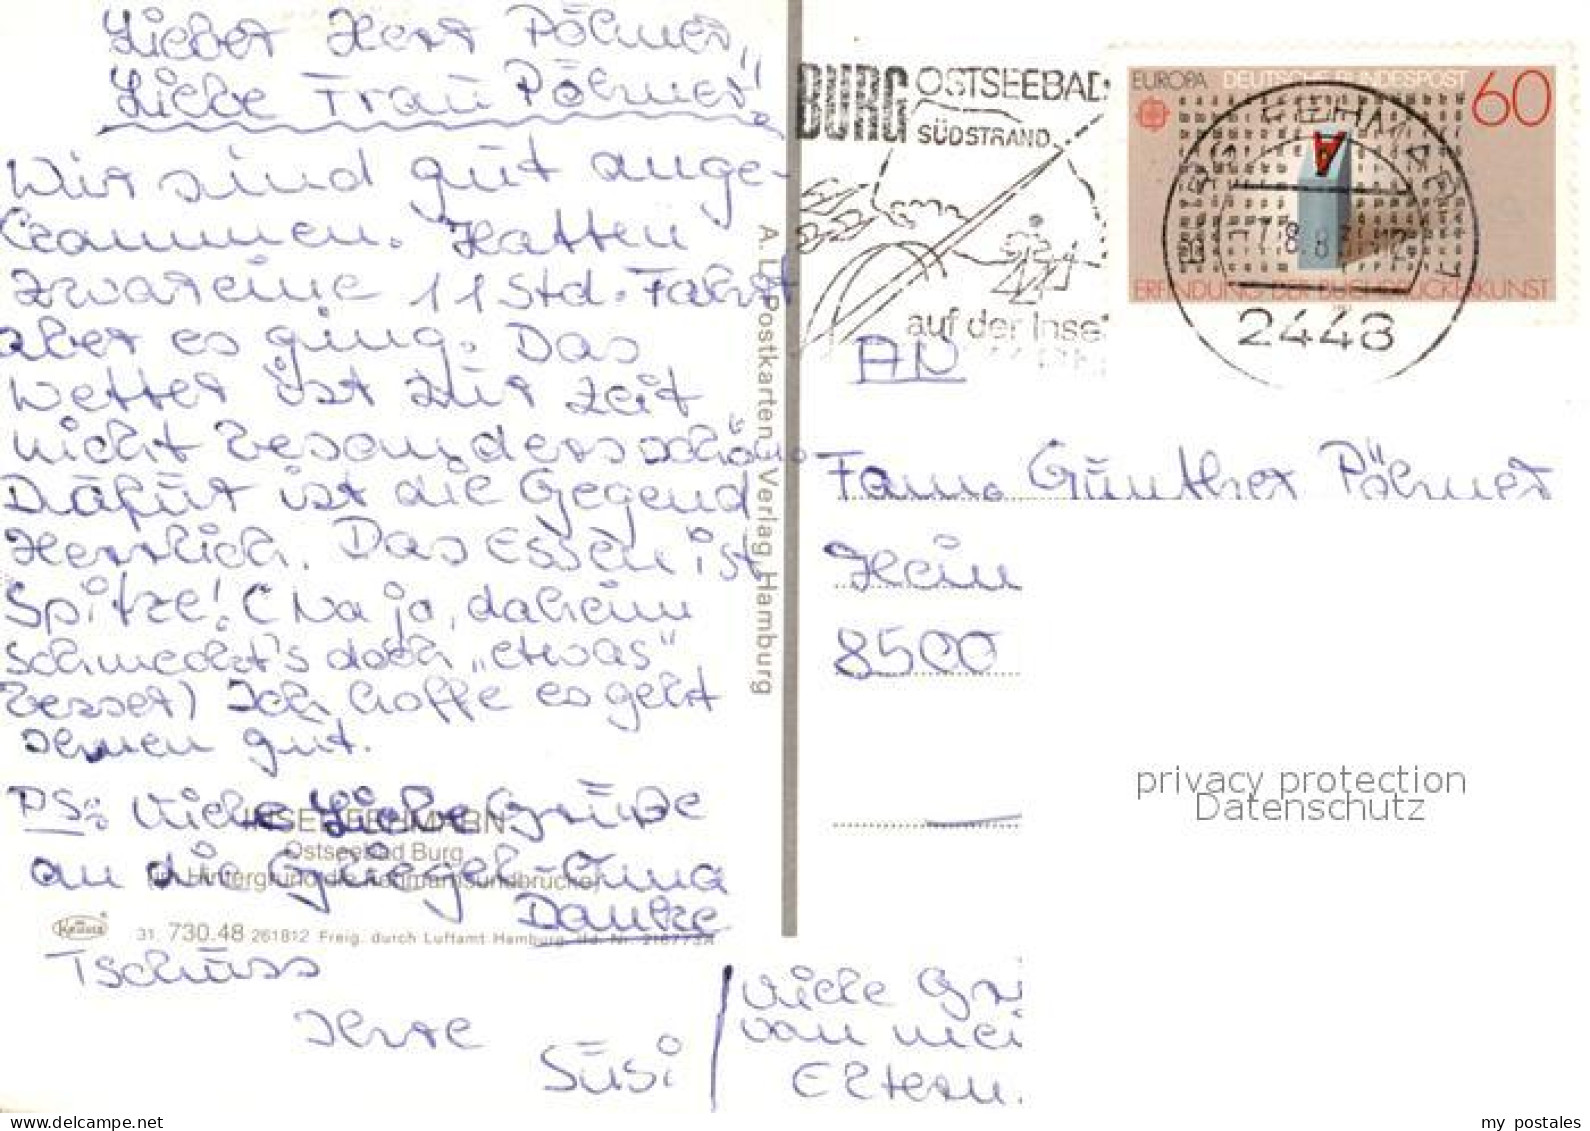 Lieber Herr Pölmer,
Liebe Frau Pölmer!
Wir sind gut ange-
kommen. Hatten
zwar eine 11 Std. Fahrt
aber es ging. Das
Wetter ist zur Zeit
nicht besonders schön.
Dafür ist die Gegend
Herrlich. Das Essen ist
Spitze! (Na ja, daheim
schmeckt's doch „etwas"
besser) Ich hoffe es geht
Ihnen gut.
PS: Viele Liebe Grüße
an die
Danke
Tschüss
Ihre
Susi
Viele Grü
von mei
Eltern.
INSEL FEHMARN
Ostseebad Burg
(im Hintergrund die Fehmarnsundbrücke)
Krüger
31. 730.48 261812 Freig. durch Luftamt Hamburg
Postkarten Verlag, Hamburg
BURG OSTSEEBAD
SÜDSTRAND
auf der Inse
EUROPA DEUTSCHE BUNDESPOST 60
ERFINDUNG DER BUCHDRUCKERKUNST
2448
AN
Fam. Günther Pölmer
Hein
8500
privacy protection
Datenschutz
my postales